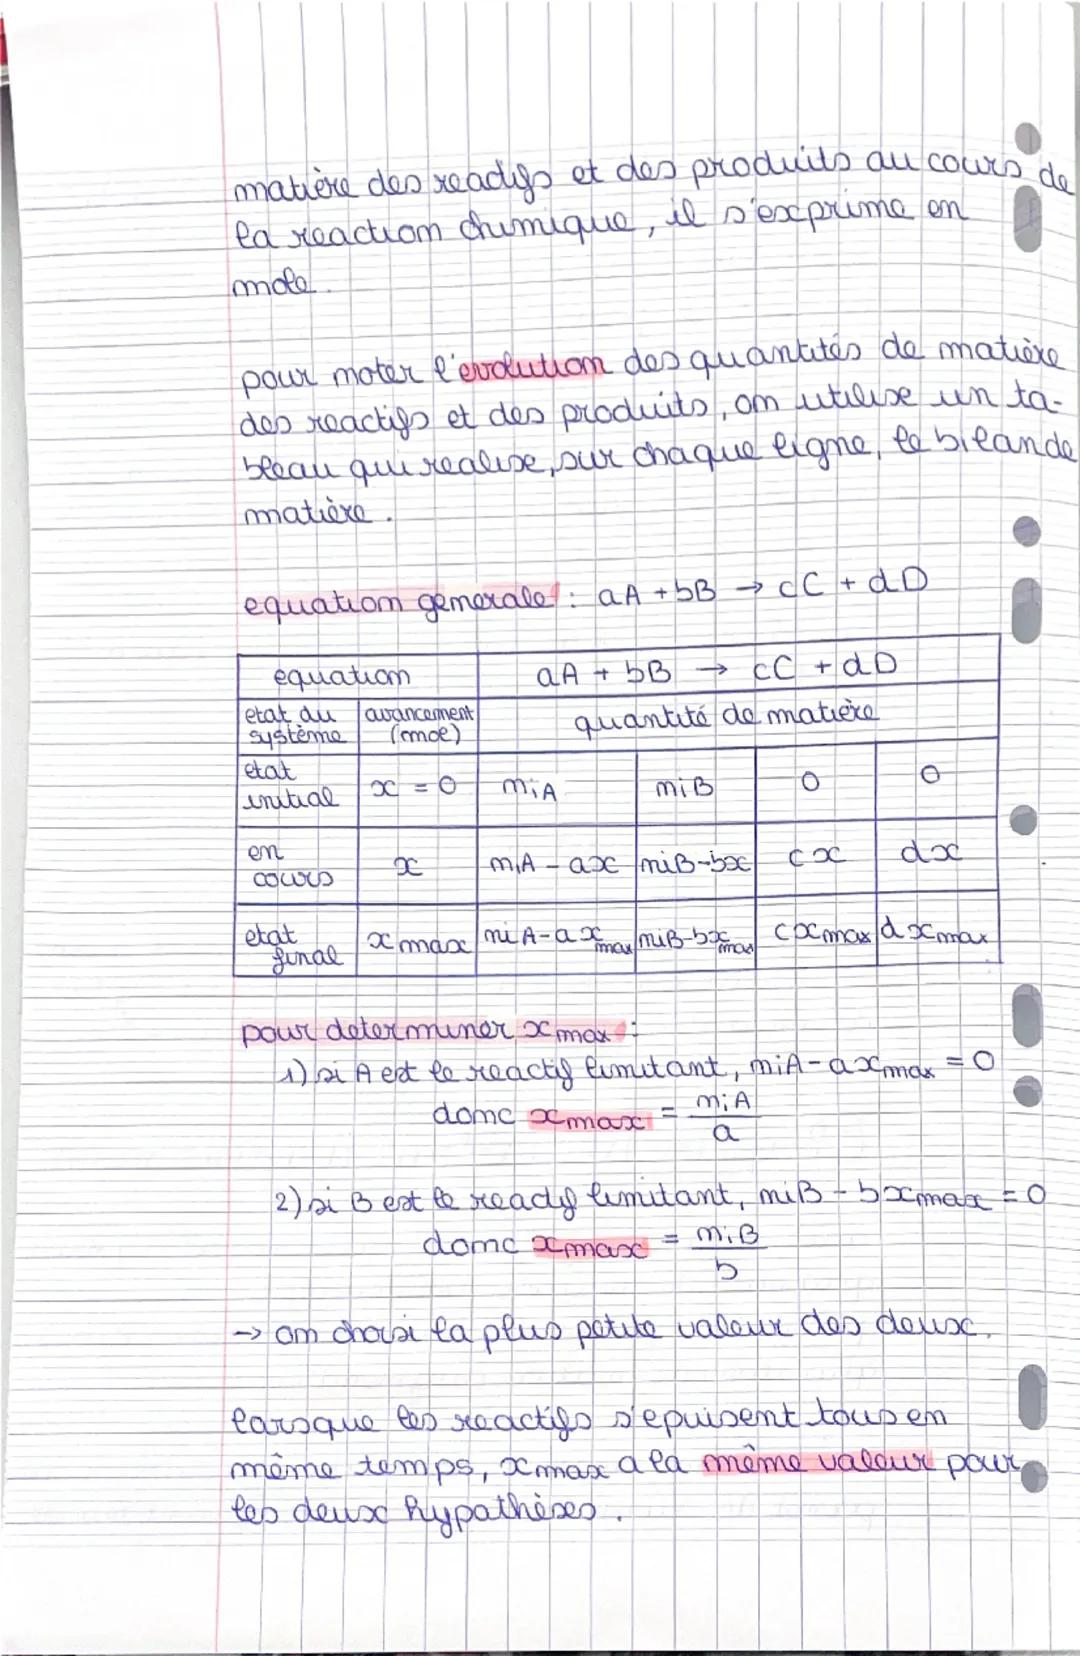 matière des reactifs et des produits au cours de
la reaction chimique, il s'exprime en
mole.
pour noter l'evolution des quantités de matière
des reactifs et des produits, on utilise un ta-
bleau qui realise, sur chaque ligne, le bilan de
matière.
equation generale : aA + bB → cC + dD
equation aA + bB → cC + dD
etat du système avancement (mol) quantité de matière
etat initial x = 0 niA niB 0 0
en cours x niA - ax niB-bx cx dx
etat final xmax niA-axmax niB-bxmax cxmax dxmax
pour determiner xmax :
1) si A est le reactif limitant, niA-axmax = 0
donc xmax = niA/a
2) si B est le reactif limitant, niB - bxmax = 0
donc xmax = niB/b
→ on choisi la plus petite valeur des deux.
lorsque les reactifs s'epuisent tous en
même temps, xmax a la même valeur pour
les deux hypothèses.